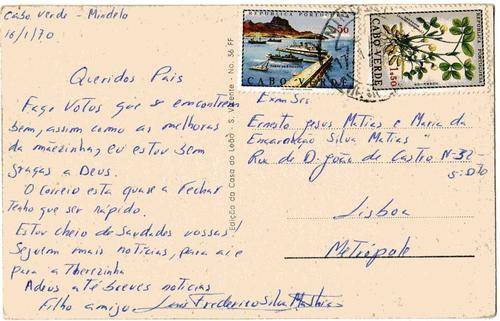 Cabo Verde - Mindelo
16/1/70
Queridos Pais
Faço Votos que se encontrem
bem, assim como as melhoras
da mãezinha, eu estou bem
graças a Deus.
O Correio está quase a Fechar
Tenho que ser rápido.
Estou cheio de Saudades vossas!
Seguem mais notícias, para aí e
para a Therezinha
Adeus até breves notícias
Filho amigo Luis Frederico Silva Mathias
Edição da Casa do Leão - S. Vicente - No. 36 FF
REPÚBLICA PORTUGUESA
CABO VERDE
REPÚBLICA PORTUGUESA
CABO VERDE
1$50
Exmos Srs
Ernesto Jesus Matias e Maria da
Encarnação Silva Matias
Rua de D. João de Castro Nº-32-
5º Dto
Lisboa
Metrópole